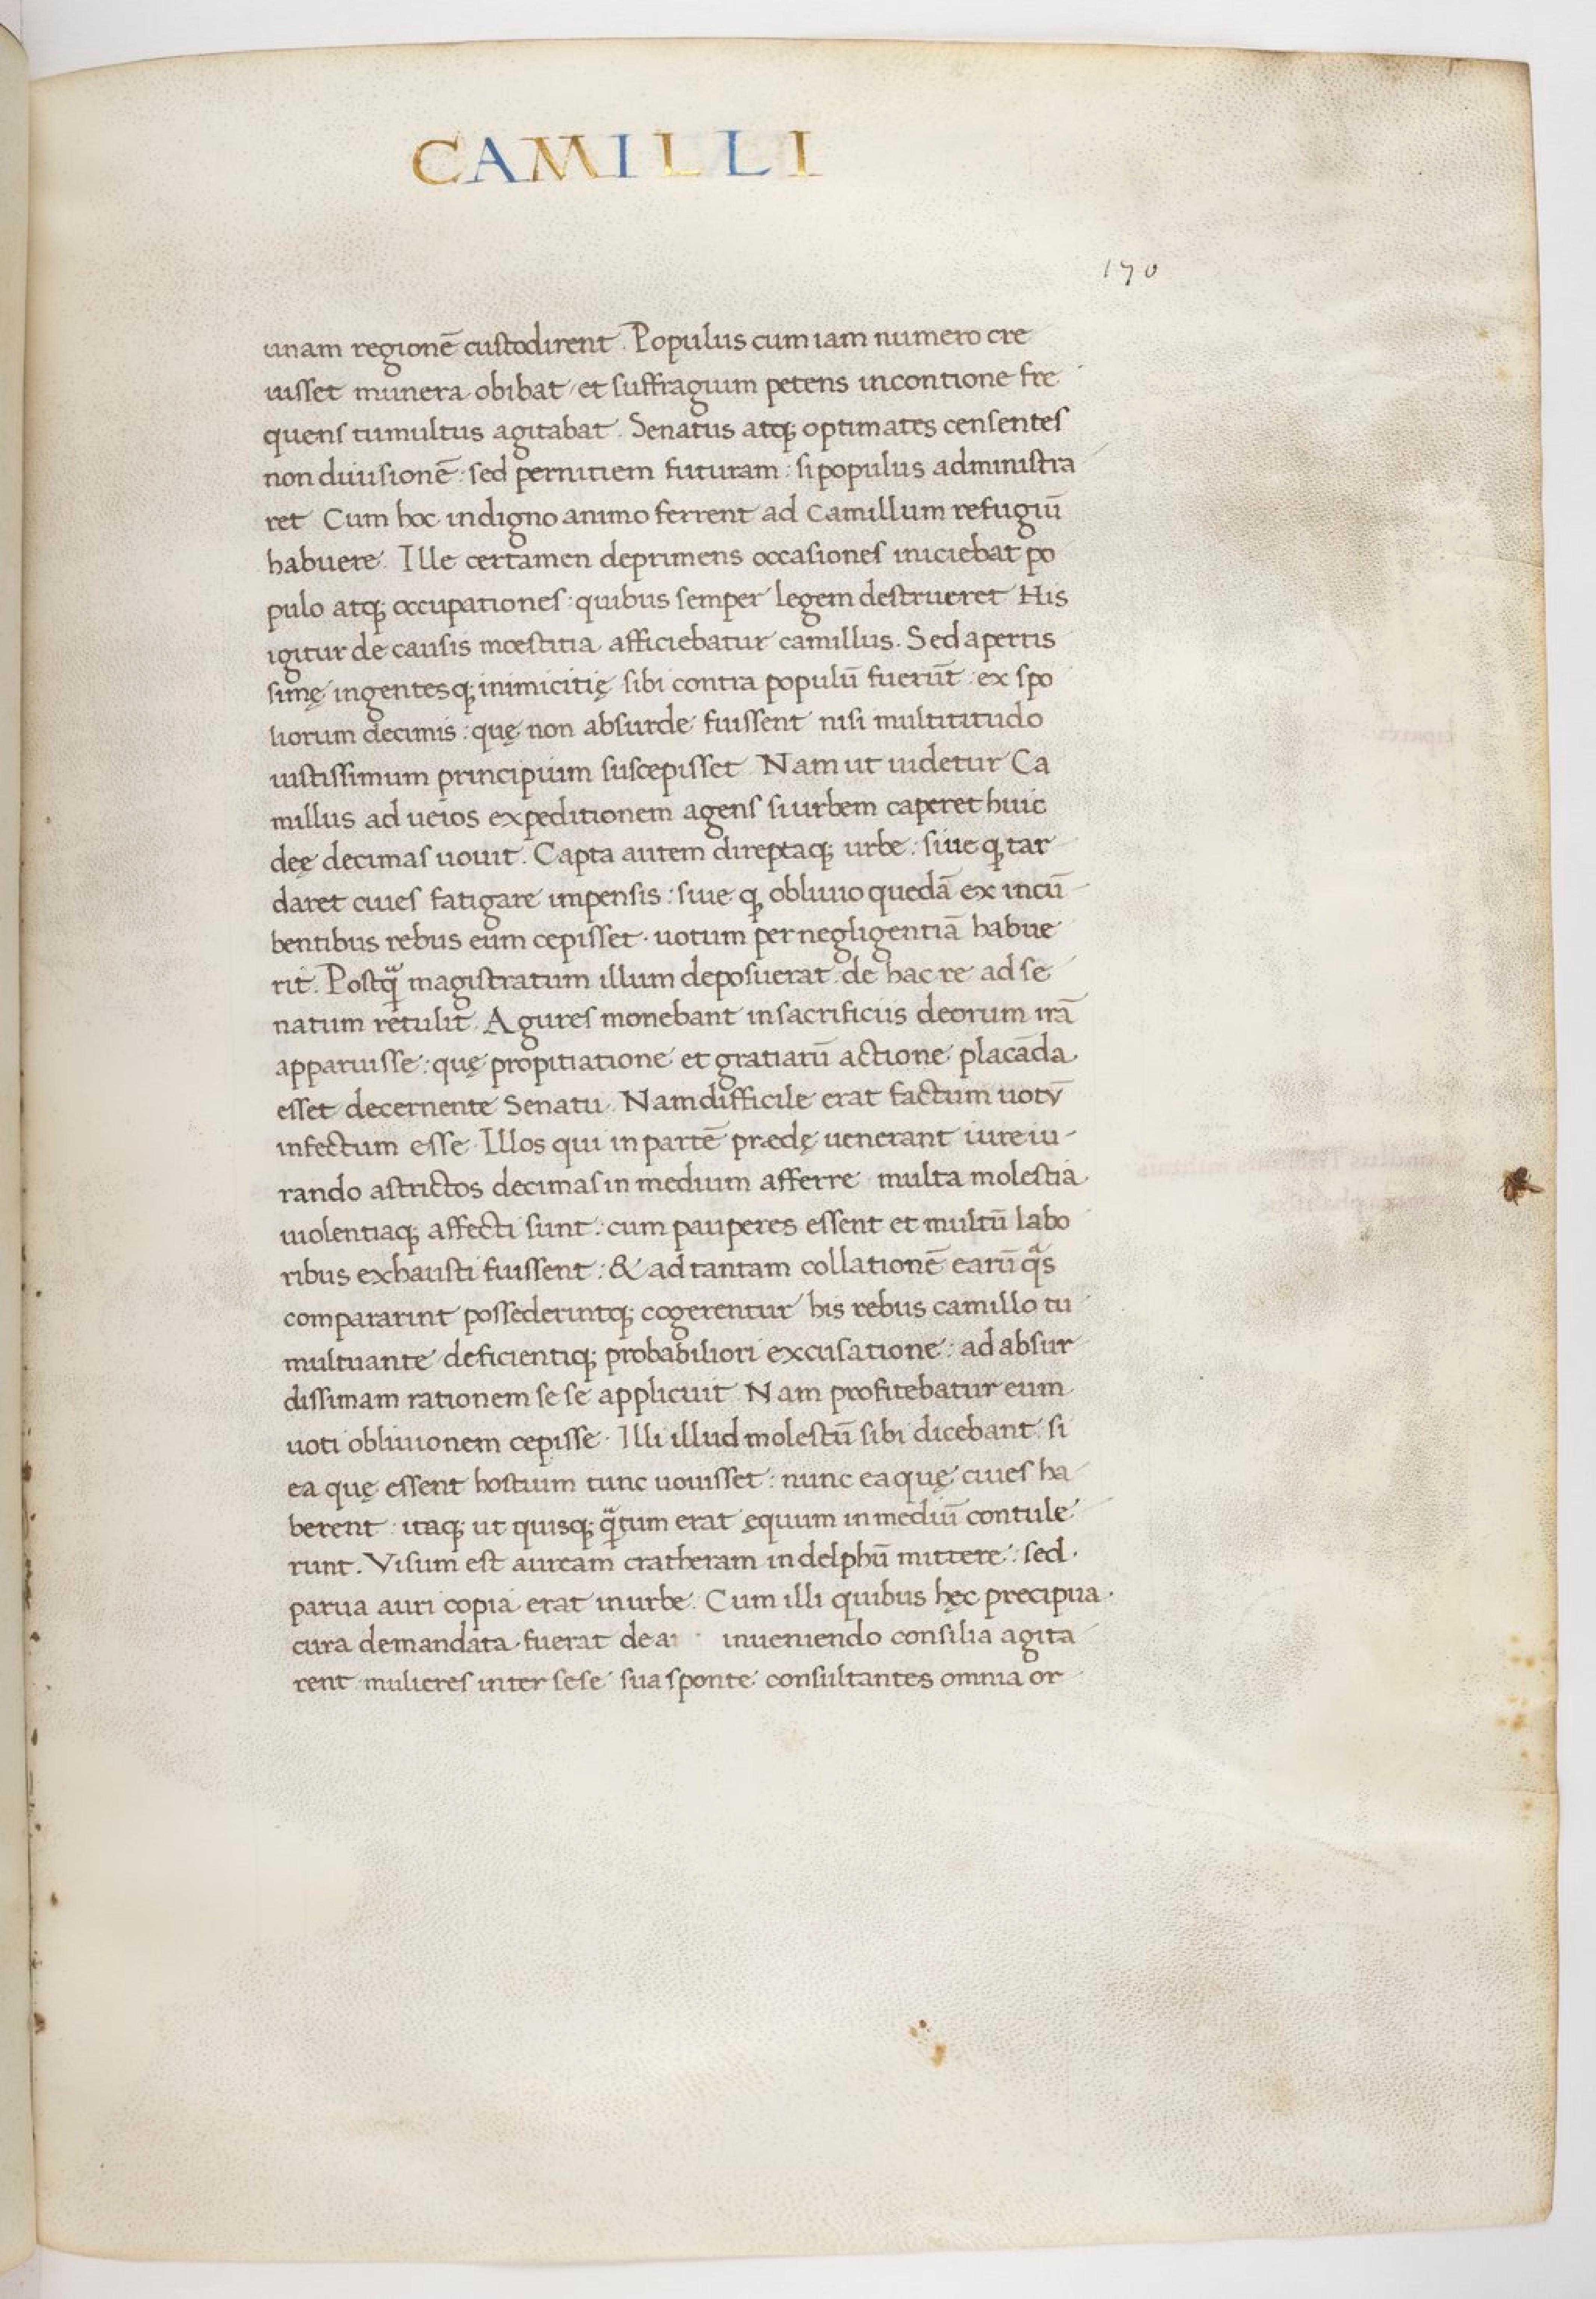 CAMILLI
170
unam regionē custodirent. Populus cum iam numero cre
uisset munera obibat et suffragium petens in contione fre
quens tumultus agitabat. Senatus atq; optimates censentes
non diuisionē: sed pernitiem futuram: si populus administra
ret Cum hoc indigno animo ferrent ad Camillum refugiū
habuere. Ille certamen deprimens occasiones iniciebat po
pulo atq; occupationes: quibus semper legem destrueret His
igitur de causis mœstitia afficiebatur camillus. Sed apertis
simę ingentesq; inimicitię sibi contra populū fuerūt: ex spo
liorum decimis: quę non absurde fuissent nisi multititudo
iustissimum principium suscepisset. Nam ut uidetur Ca
millus ad ueios expeditionem agens si urbem caperet huic
deę decimas uouit. Capta autem direptaq; urbe: siue ꝙ tar
daret ciues fatigare impensis: siue ꝙ obliuio quedā ex incū
bentibus rebus eum cepisset. uotum per negligentiā habue
rit. Postq̄ magistratum illum deposuerat de hac re ad se
natum retulit. Agures monebant in sacrificiis deorum irā
apparuisse: quę propitiatione et gratiarū actione placāda
esset decernente Senatu. Nam difficile erat factum uotv̄
infectum esse. Illos qui in partē prædę uenerant iureiu-
rando astrictos decimas in medium afferre multa molestia
uiolentiaq; affecti sunt: cum pauperes essent et multū labo
ribus exhausti fuissent: & ad tantam collationē earū qͣs
compararint possederintq; cogerentur his rebus camillo tu
multuante deficientiq; probabiliori excusatione: ad absur
dissimam rationem se se applicuit Nam profitebatur eum
uoti obliuionem cepisse. Illi illud molestū sibi dicebant: si
ea quę essent hostium tunc uouisset: nunc ea quę ciues ha
berent: itaq; ut quisq; qͣtum erat ęquum in mediū contule
runt. Visum est auream cratheram in delphū mittere: sed.
parua auri copia erat in urbe. Cum illi quibus hęc precipua.
cura demandata fuerat de a inueniendo consilia agita
rent mulieres inter sese sua sponte consultantes omnia or